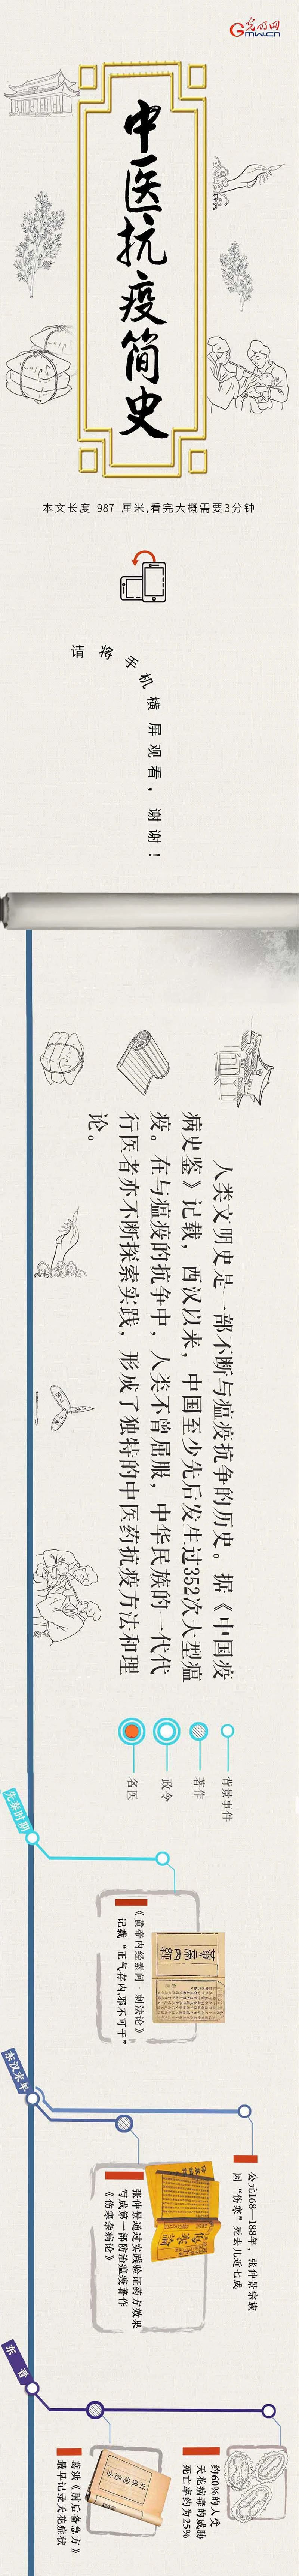 光明网
GMW.CN
中医抗疫简史
本文长度 987 厘米,看完大概需要3分钟
请将手机横屏观看，谢谢！
人类文明史是一部不断与瘟疫抗争的历史。据《中国疫
病史鉴》记载，西汉以来，中国至少先后发生过352次大型瘟
疫。在与瘟疫的抗争中，人类不曾屈服，中华民族的一代代
行医者亦不断探索实践，形成了独特的中医药抗疫方法和理
论。
背景事件
著作
政令
名医
先秦时期
黄帝内经
《黄帝内经素问·刺法论》
记载“正气存内,邪不可干”
东汉末年
公元168—188年，张仲景宗族
因“伤寒”死去几近七成
伤寒论
张仲景通过实践验证药方效果
写成第一部防治瘟疫著作
《伤寒杂病论》
东晋
约60%的人受
天花病毒的威胁
死亡率约为25%
葛洪《肘后备急方》
最早记录天花症状